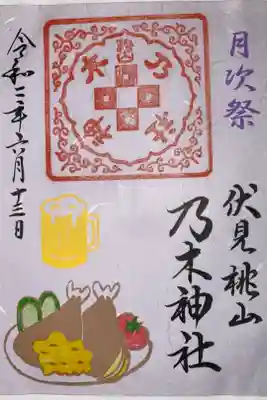 月次祭
伏見桃山
乃木神社
令和三年六月十三日